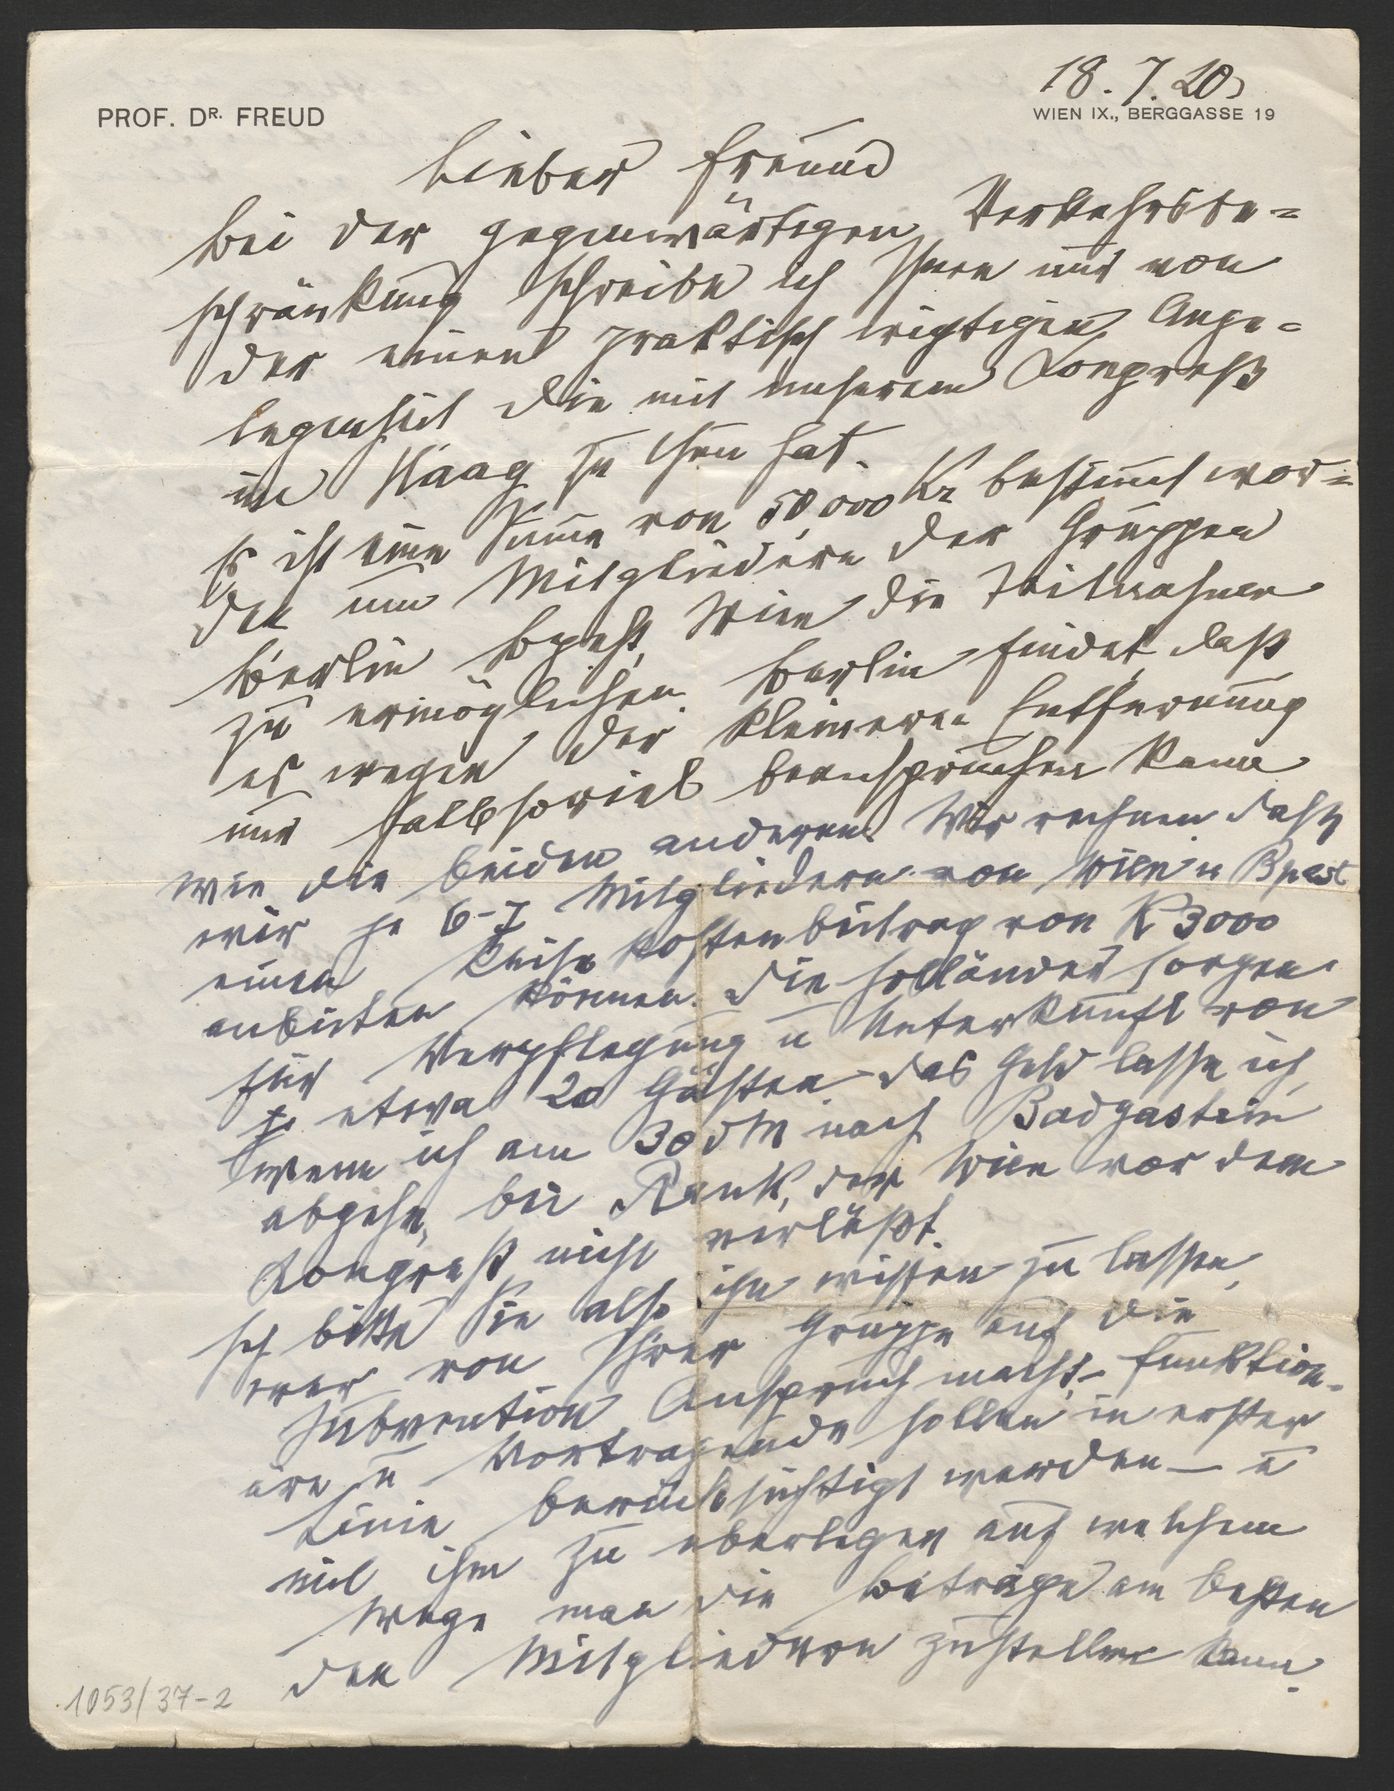 18. 7. 20.
PROF. DR. FREUD
WIEN IX., BERGGASSE 19
Lieber Freund
Bei der gegenwärtigen Verkehrsbe=
schränkung schreibe ich Ihnen nur von
der einen praktisch wichtigen Ange=
legenheit die mit unserem Congreß
im Haag zu thun hat.
Es ist eine Summe von 50,000 Kr bestimmt wor=
den um Mitgliedern der Gruppen
Berlin Bpest, Wien die Teilnahme
zu ermöglichen. Berlin findet, daß
es wegen der kleineren Entfernung
nur halbsoviel beanspruchen kann
wie die beiden anderen. Wir rechnen daß
wir je 6-7 Mitgliedern von Wien u Bpest
einen Reisekostenbeitrag von K 3000
anbieten können. Die Holländer sorgen
für Verpflegung u Unterkunft von
je etwa 20 Gästen. Das Geld lasse ich,
wenn ich am 30 d M nach Badgastein
abgehe, bei Rank, der Wien vor dem
Congreß nicht verläßt.
Ich bitte Sie also ihn wissen zu lassen,
wer von Ihrer Gruppe auf die
Subvention Anspruch macht – Funktion-
äre u Vortragende sollen in erster
Linie berücksichtigt werden – u
mit ihm zu überlegen auf welchem
Wege man die Beträge am besten
den Mitgliedern zustellen kann.
1053/37-2